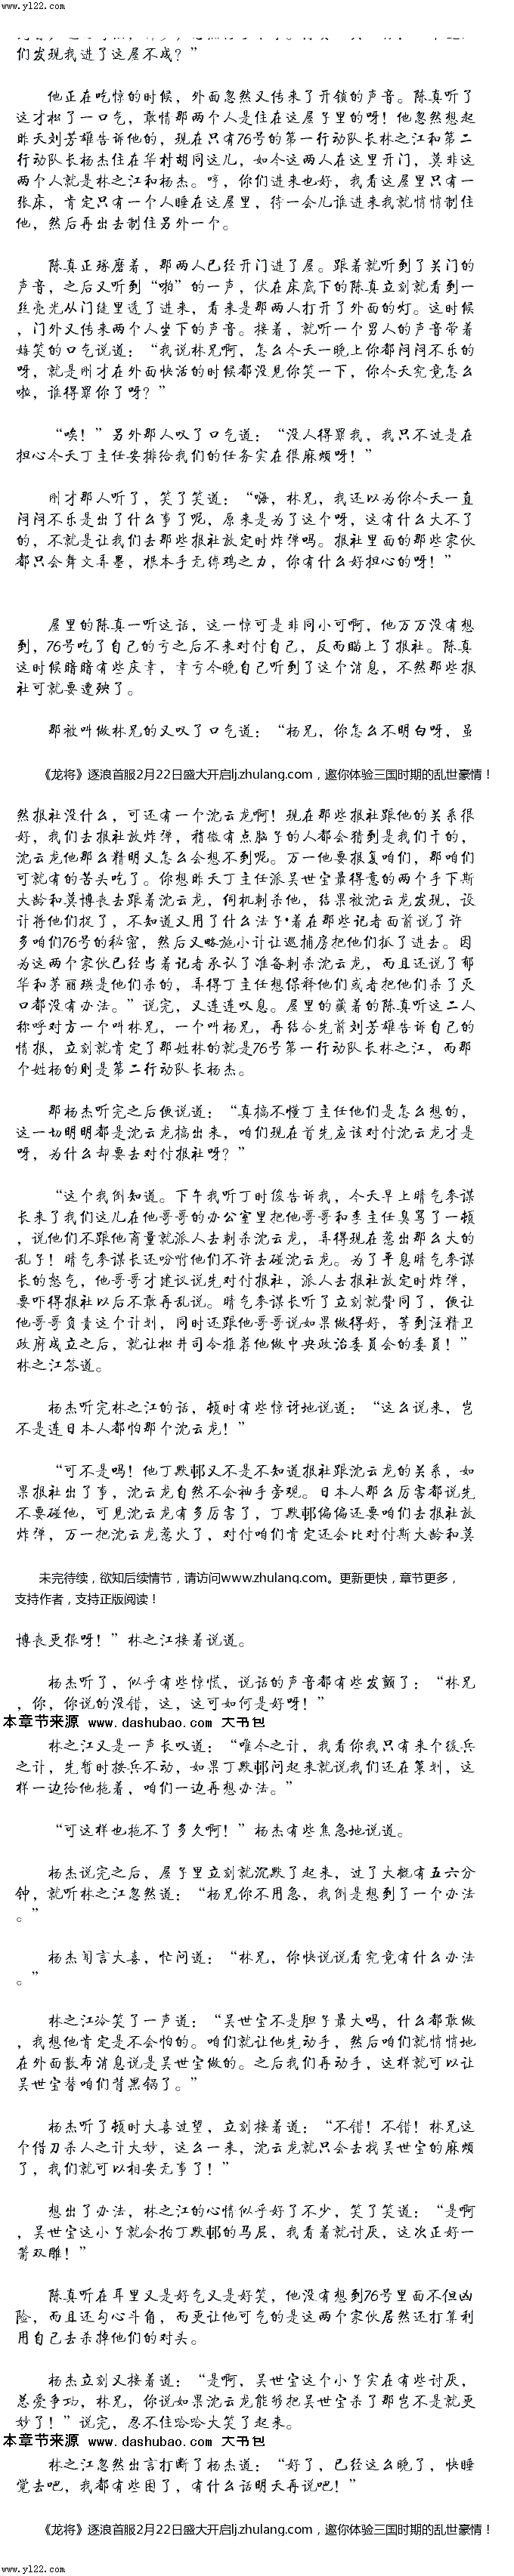 www.yl22.com
们发现我进了这屋不成？”
他正在吃惊的时候，外面忽然又传来了开锁的声音。陈真听了
这才松了一口气，敢情那两个人是住在这屋子里的呀！他忽然想起
昨天刘芳雄告诉他的，现在只有76号的第一行动队长林之江和第二
行动队长杨杰住在华村胡同这儿，如今这两人在这里开门，莫非这
两个人就是林之江和杨杰。哼，你们进来也好，我看这屋里只有一
张床，肯定只有一个人睡在这屋里，待一会儿谁进来我就悄悄制住
他，然后再出去制住另外一个。
陈真正琢磨着，那两人已经开门进了屋。跟着就听到了关门的
声音，之后又听到“啪”的一声，伏在床底下的陈真立刻就看到一
丝亮光从门缝里透了进来，看来是那两人打开了外面的灯。这时候
，门外又传来两个人坐下的声音。接着，就听一个男人的声音带着
嬉笑的口气说道：“我说林兄啊，怎么今天一晚上你都闷闷不乐的
呀，就是刚才在外面快活的时候都没见你笑一下，你今天究竟怎么
啦，谁得罪你了呀？”
“唉！”另外那人叹了口气道：“没人得罪我，我只不过是在
担心今天丁主任安排给我们的任务实在很麻烦呀！”
刚才那人听了，笑了笑道：“嗨，林兄，我还以为你今天一直
闷闷不乐是出了什么事了呢，原来是为了这个呀，这有什么大不了
的，不就是让我们去那些报社放定时炸弹吗。报社里面的那些家伙
都只会舞文弄墨，根本手无缚鸡之力，你有什么好担心的呀！”
屋里的陈真一听这话，这一惊可是非同小可啊，他万万没有想
到，76号吃了自己的亏之后不来对付自己，反而瞄上了报社。陈真
这时候暗暗有些庆幸，幸亏今晚自己听到了这个消息，不然那些报
社可就要遭殃了。
那被叫做林兄的又叹了口气道：“杨兄，你怎么不明白呀，虽
《龙将》逐浪首服2月22日盛大开启lj.zhulang.com，邀你体验三国时期的乱世豪情！
然报社没什么，可还有一个沈云龙啊！现在那些报社跟他的关系很
好，我们去报社放炸弹，稍微有点脑子的人都会猜到是我们干的，
沈云龙他那么精明又怎么会想不到呢。万一他要报复咱们，那咱们
可就有的苦头吃了。你想昨天丁主任派吴世宝最得意的两个手下斯
大龄和莫博丧去跟着沈云龙，伺机刺杀他，结果被沈云龙发现，设
计将他们捉了，不知道又用了什么法子*着在那些记者面前说了许
多咱们76号的秘密，然后又略施小计让巡捕房把他们抓了进去。因
为这两个家伙已经当着记者承认了准备刺杀沈云龙，而且还说了郁
华和茅丽瑛是他们杀的，弄得丁主任想保释他们或者把他们杀了灭
口都没有办法。”说完，又连连叹息。屋里的藏着的陈真听这二人
称呼对方一个叫林兄，一个叫杨兄，再结合先前刘芳雄告诉自己的
情报，立刻就肯定了那姓林的就是76号第一行动队长林之江，而那
个姓杨的则是第二行动队长杨杰。
那杨杰听完之后便说道：“真搞不懂丁主任他们是怎么想的，
这一切明明都是沈云龙搞出来，咱们现在首先应该对付沈云龙才是
呀，为什么却要去对付报社呀？”
“这个我倒知道。下午我听丁时俊告诉我，今天早上晴气参谋
长来了我们这儿在他哥哥的办公室里把他哥哥和李主任臭骂了一顿
，说他们不跟他商量就派人去刺杀沈云龙，弄得现在惹出那么大的
乱子！晴气参谋长还吩咐他们不许去碰沈云龙。为了平息晴气参谋
长的怒气，他哥哥才建议说先对付报社，派人去报社放定时炸弹，
要吓得报社以后不敢再乱说。晴气参谋长听了立刻就赞同了，便让
他哥哥负责这个计划，同时还跟他哥哥说如果做得好，等到汪精卫
政府成立之后，就让松井司令推荐他做中央政治委员会的委员！”
林之江答道。
杨杰听完林之江的话，顿时有些惊讶地说道：“这么说来，岂
不是连日本人都怕那个沈云龙！”
“可不是吗！他丁默邨又不是不知道报社跟沈云龙的关系，如
果报社出了事，沈云龙自然不会袖手旁观。日本人那么厉害都说先
不要碰他，可见沈云龙有多厉害了，丁默邨偏偏还要咱们去报社放
炸弹，万一把沈云龙惹火了，对付咱们肯定还会比对付斯大龄和莫
未完待续，欲知后续情节，请访问www.zhulang.com。更新更快，章节更多，
支持作者，支持正版阅读！
博丧更狠呀！”林之江接着说道。
杨杰听了，似乎有些惊慌，说话的声音都有些发颤了：“林兄
，你，你说的没错，这，这可如何是好呀！”
本章节来源 www.dashubao.com 大书包
林之江又是一声长叹道：“唯今之计，我看你我只有来个缓兵
之计，先暂时按兵不动，如果丁默邨问起来就说我们还在策划，这
样一边给他拖着，咱们一边再想办法。”
“可这样也拖不了多久啊！”杨杰有些焦急地说道。
杨杰说完之后，屋子里立刻就沉默了起来，过了大概有五六分
钟，就听林之江忽然道：“杨兄你不用急，我倒是想到了一个办法
。”
杨杰闻言大喜，忙问道：“林兄，你快说说看究竟有什么办法
。”
林之江冷笑了一声道：“吴世宝不是胆子最大吗，什么都敢做
，我想他肯定是不会怕的。咱们就让他先动手，然后咱们就悄悄地
在外面散布消息说是吴世宝做的。之后我们再动手，这样就可以让
吴世宝替咱们背黑锅了。”
杨杰听了顿时大喜过望，立刻接着道：“不错！不错！林兄这
个借刀杀人之计大妙，这么一来，沈云龙就只会去找吴世宝的麻烦
了，我们就可以相安无事了！”
想出了办法，林之江的心情似乎好了不少，笑了笑道：“是啊
，吴世宝这小子就会拍丁默邨的马屁，我看着就讨厌，这次正好一
箭双雕！”
陈真听在耳里又是好气又是好笑，他没有想到76号里面不但凶
险，而且还勾心斗角，而更让他可气的是这两个家伙居然还打算利
用自己去杀掉他们的对头。
杨杰立刻又接着道：“是啊，吴世宝这个小子实在有些讨厌，
总爱争功，林兄，你说如果沈云龙能够把吴世宝杀了那岂不是就更
妙了！”说完，忍不住哈哈大笑了起来。
本章节来源 www.dashubao.com 大书包
林之江忽然出言打断了杨杰道：“好了，已经这么晚了，快睡
觉去吧，我都有些困了，有什么话明天再说吧！”
《龙将》逐浪首服2月22日盛大开启lj.zhulang.com，邀你体验三国时期的乱世豪情！
www.yl22.com